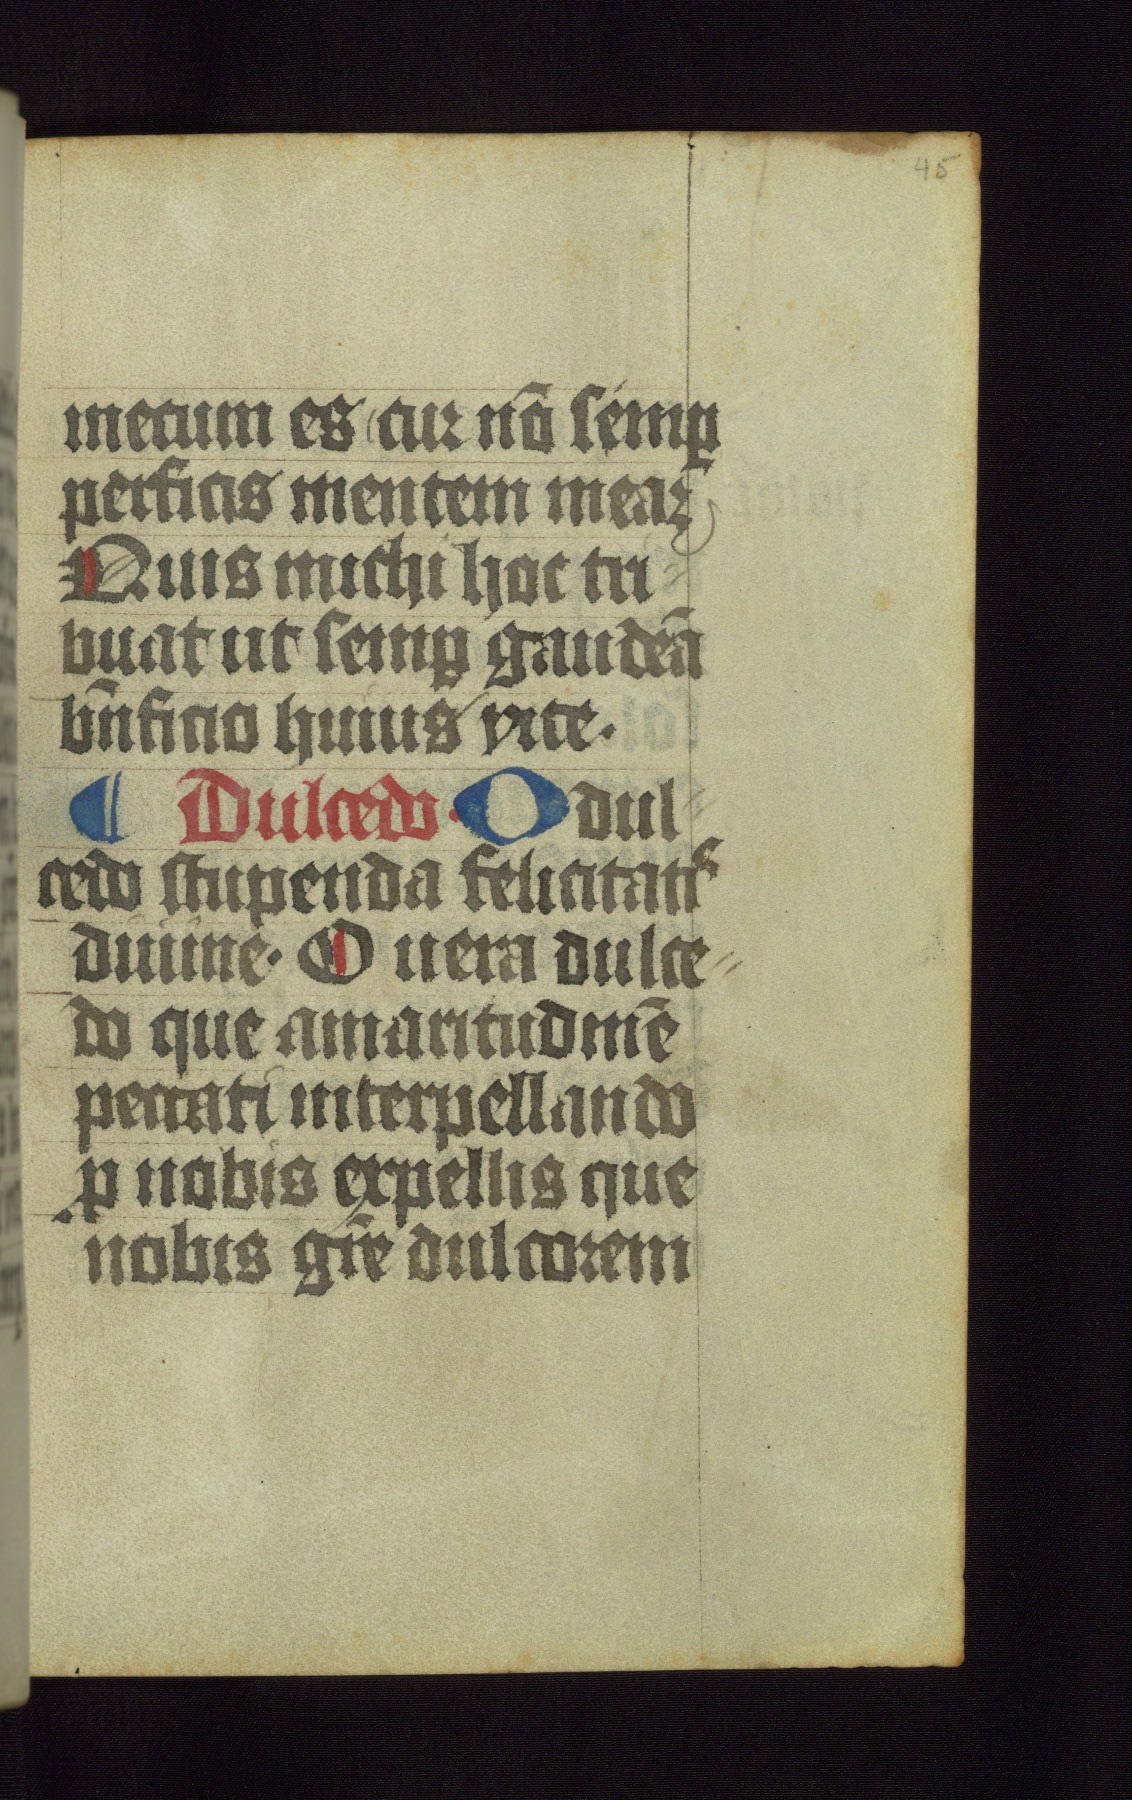 45
mecum es cur nō semꝑ
perficis mentem meaꝫ
Quis michi hoc tri
buat ut semꝑ gaudeā
bn̄ficio huius vite.
¶ Dulcedo. O dul
cedo stupenda felicitatis
diuine. O uera dulce
do que amaritudinē
peccati interpellando
ꝓ nobis expellis que
nobis gr̄e dulcorem